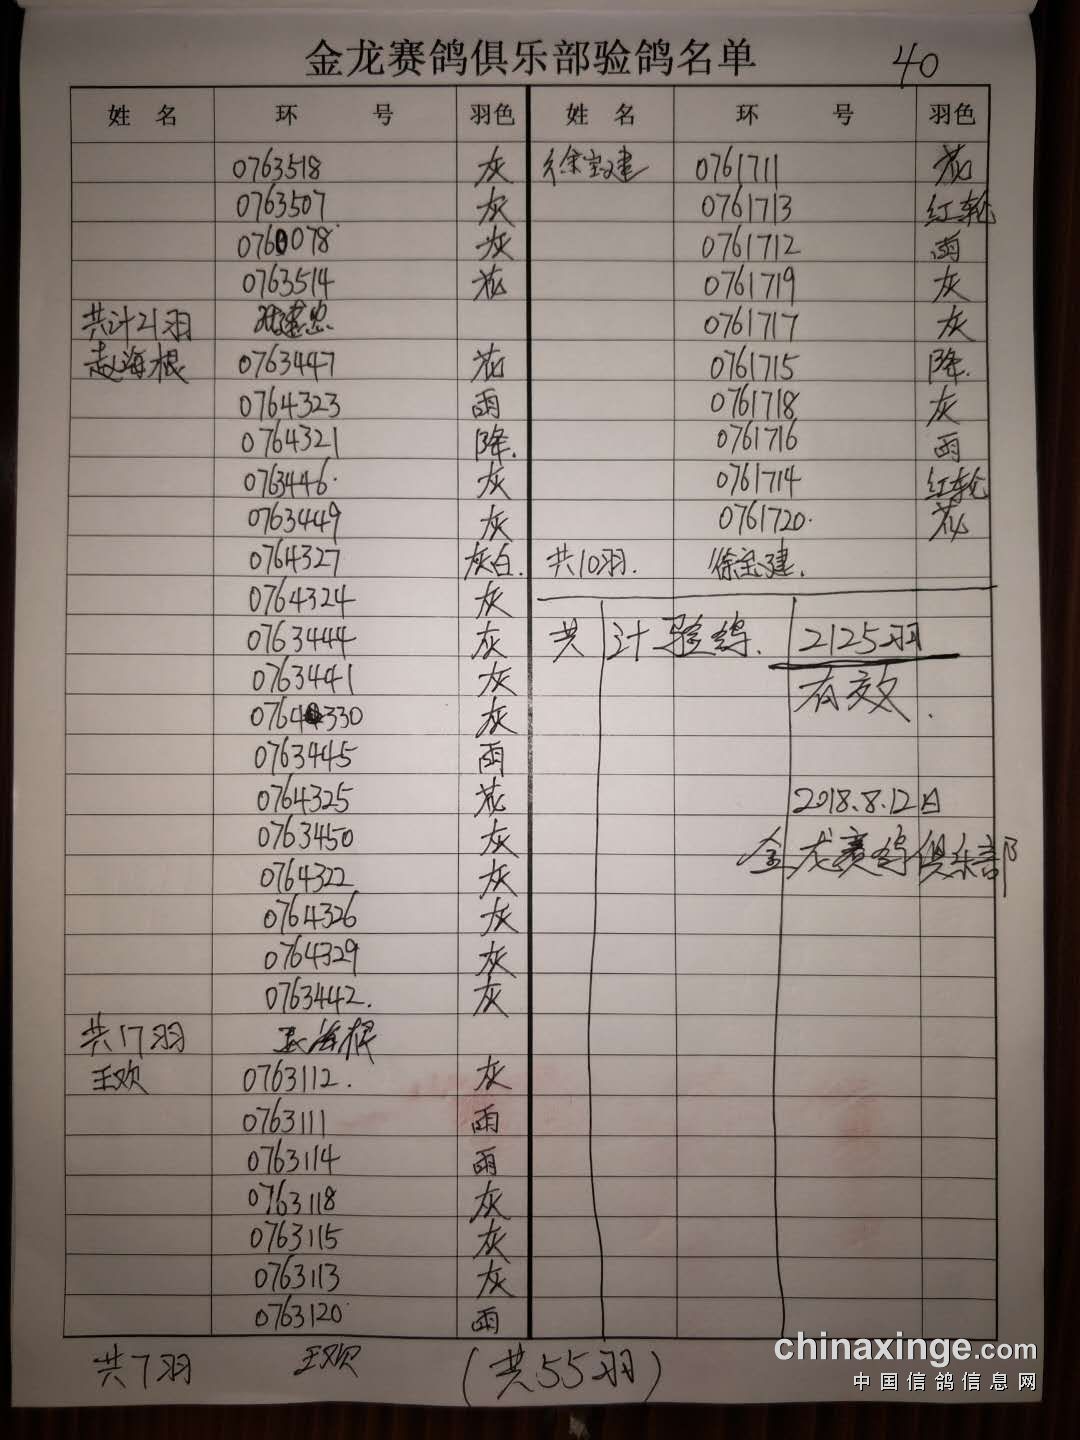 金龙赛鸽俱乐部验鸽名单
40
姓 名 环 号 羽色
0763518 灰
0763507 灰
0760078 灰
0763514 花
共计21羽
赵海根 0763447 花
0764323 雨
0764321 降.
0763446. 灰
0763449 灰
0764327 灰白.
0764324 灰
0763444 灰
0763441 灰
0764330 灰
0763445 雨
0764325 花
0763450 灰
0764322 灰
0764326 灰
0764329 灰
0763442. 灰
共17羽 赵海根
王欢 0763112. 灰
0763111 雨
0763114 雨
0763118 灰
0763115 灰
0763113 灰
0763120 雨
共7羽 王欢
姓 名 环 号 羽色
徐宝建 0761711 花
0761713 红轮
0761712 雨
0761719 灰
0761717 灰
0761715 降.
0761718 灰
0761716 雨
0761714 红轮
0761720. 花
共10羽. 徐宝建.
共计验鸽. 2125羽
有效.
2018.8.12日
金龙赛鸽俱乐部
(共55羽)
chinaxinge.com
中国信鸽信息网